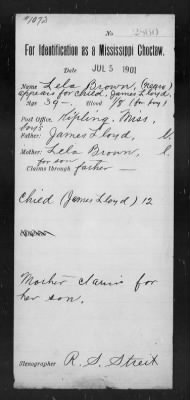 #1073
No.
For Identification as a Mississippi Choctaw.
Date JUL 5 1901
Name Lela Brown, (Negro)
appears for child, James Lloyd.
Age 39 — Blood 1/8 (for boy)
Post Office, Kipling, Miss.
boy's
Father: James Lloyd,
Mother: Lela Brown,
for son
Claims through father —
Child (James Lloyd) 12
Mother claims for
her son.
Stenographer R. S. Streit